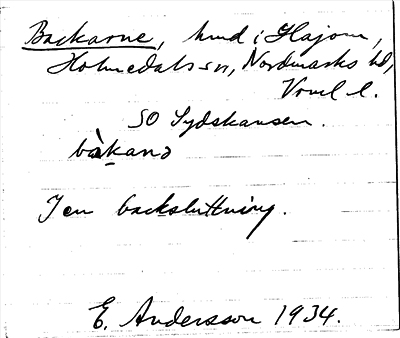 Backarne, hmd i Hajom,
Holmedals sn, Nordmarks hd,
Vrml l.
SO Sydskansen.
bàkanə
I en backsluttning.
E. Andersson 1934.